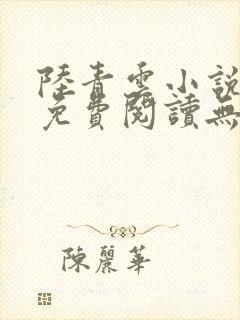 陸青雲小說
免費閱讀無
陳麗華